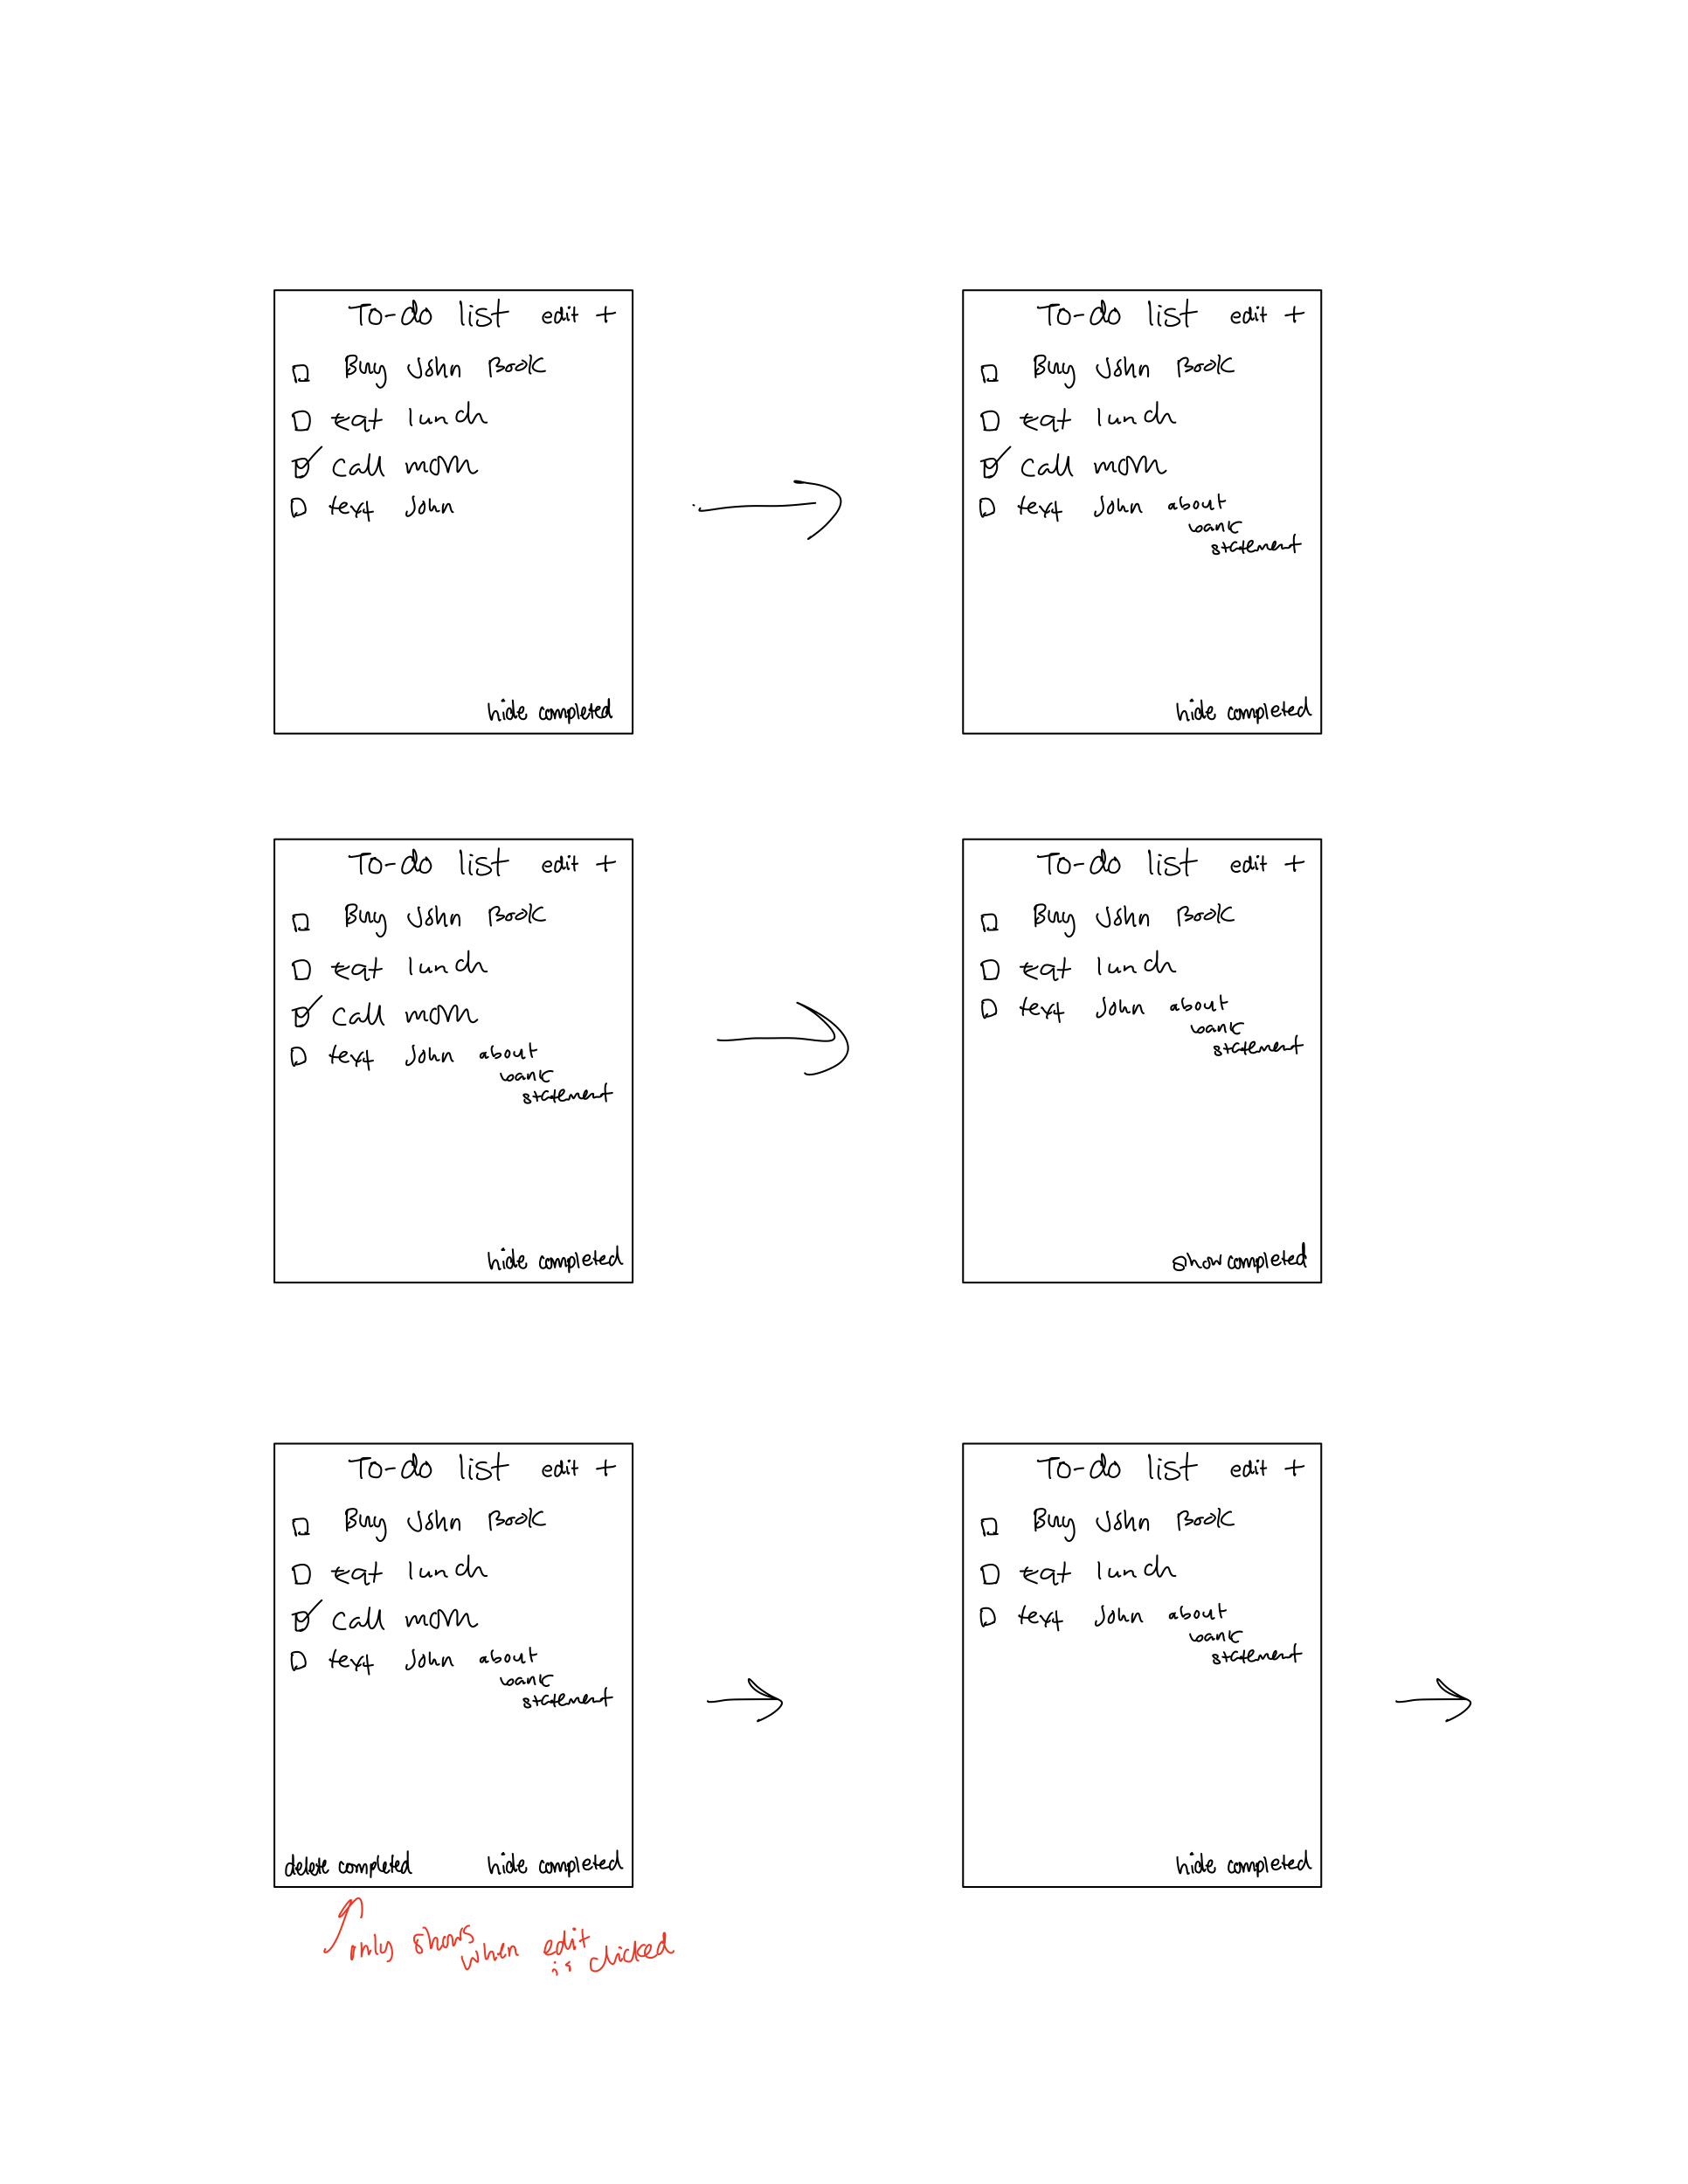 To-do list edit +
Buy John Book
eat lunch
call mom
text John
hide completed
To-do list edit +
Buy John Book
eat lunch
call mom
text John about
bank
statement
hide completed
To-do list edit +
Buy John Book
eat lunch
call mom
text John about
bank
statement
hide completed
To-do list edit +
Buy John Book
eat lunch
text John about
bank
statement
show completed
To-do list edit +
Buy John Book
eat lunch
call mom
text John about
bank
statement
delete completed hide completed
only shows
when edit
is clicked
To-do list edit +
Buy John Book
eat lunch
text John about
bank
statement
hide completed